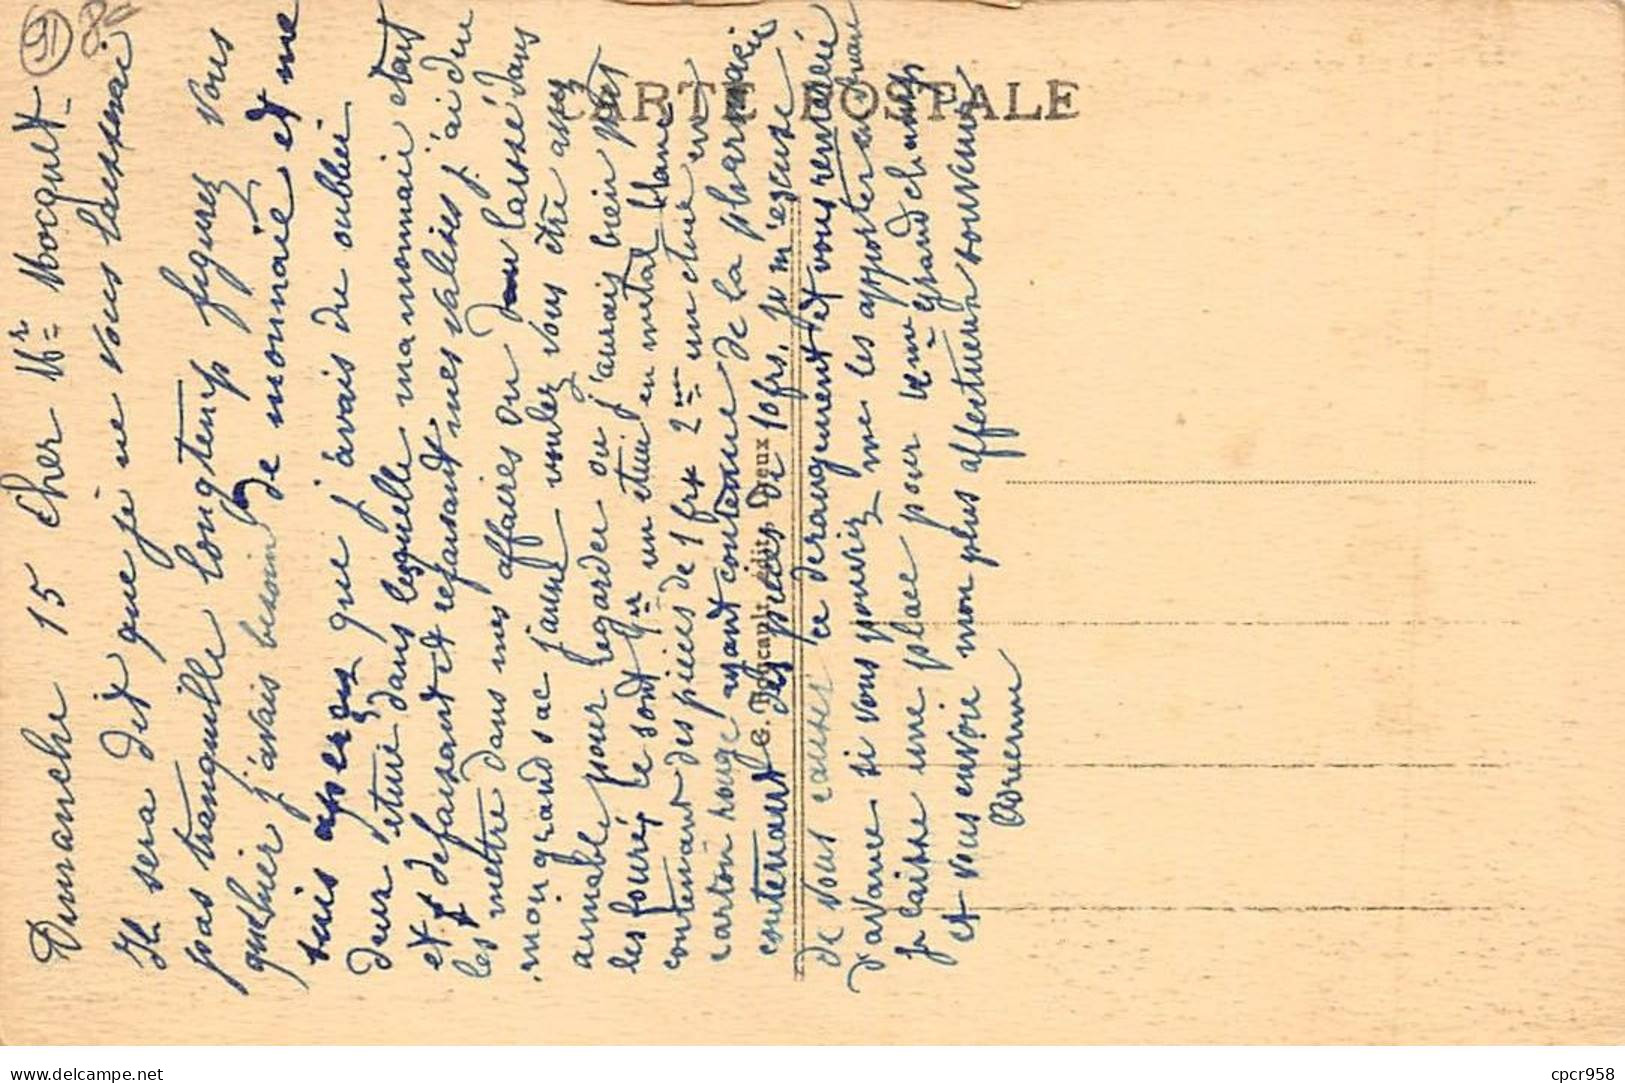 91
8e
CARTE POSTALE
G. Foucault, édit., Dreux
Dimanche 15 Cher Mr Hocquet
Il sera dit que je ne vous laisserai
pas tranquille longtemp figurez vous
qu'hier j'avais besoin de monnaie et me
suis aperçus que j'avais du oublier
deux étuie dans lesquelle ma monnaie etait
et defaisant et refaisant mes valises j'ai du
les mettre dans mes affaires ou laissé dans
mon grand sac jaune voulez vous être assez
aimable pour regarder ou j'aurais bien put
les fourez ce sont 1er un etui en metal blanc
contenant des pieces de 1 fr 2me un etuie en
carton rouge ayant contenue de la pharmacie
contenant des pieces de 10 frs, je m'escuse
de vous causer ce derangement et vous remercie
d'avance si vous pouviez me les apporter
je laisse une place pour Mme Grandchamps
et vous envoie mon plus affectueux souvenir